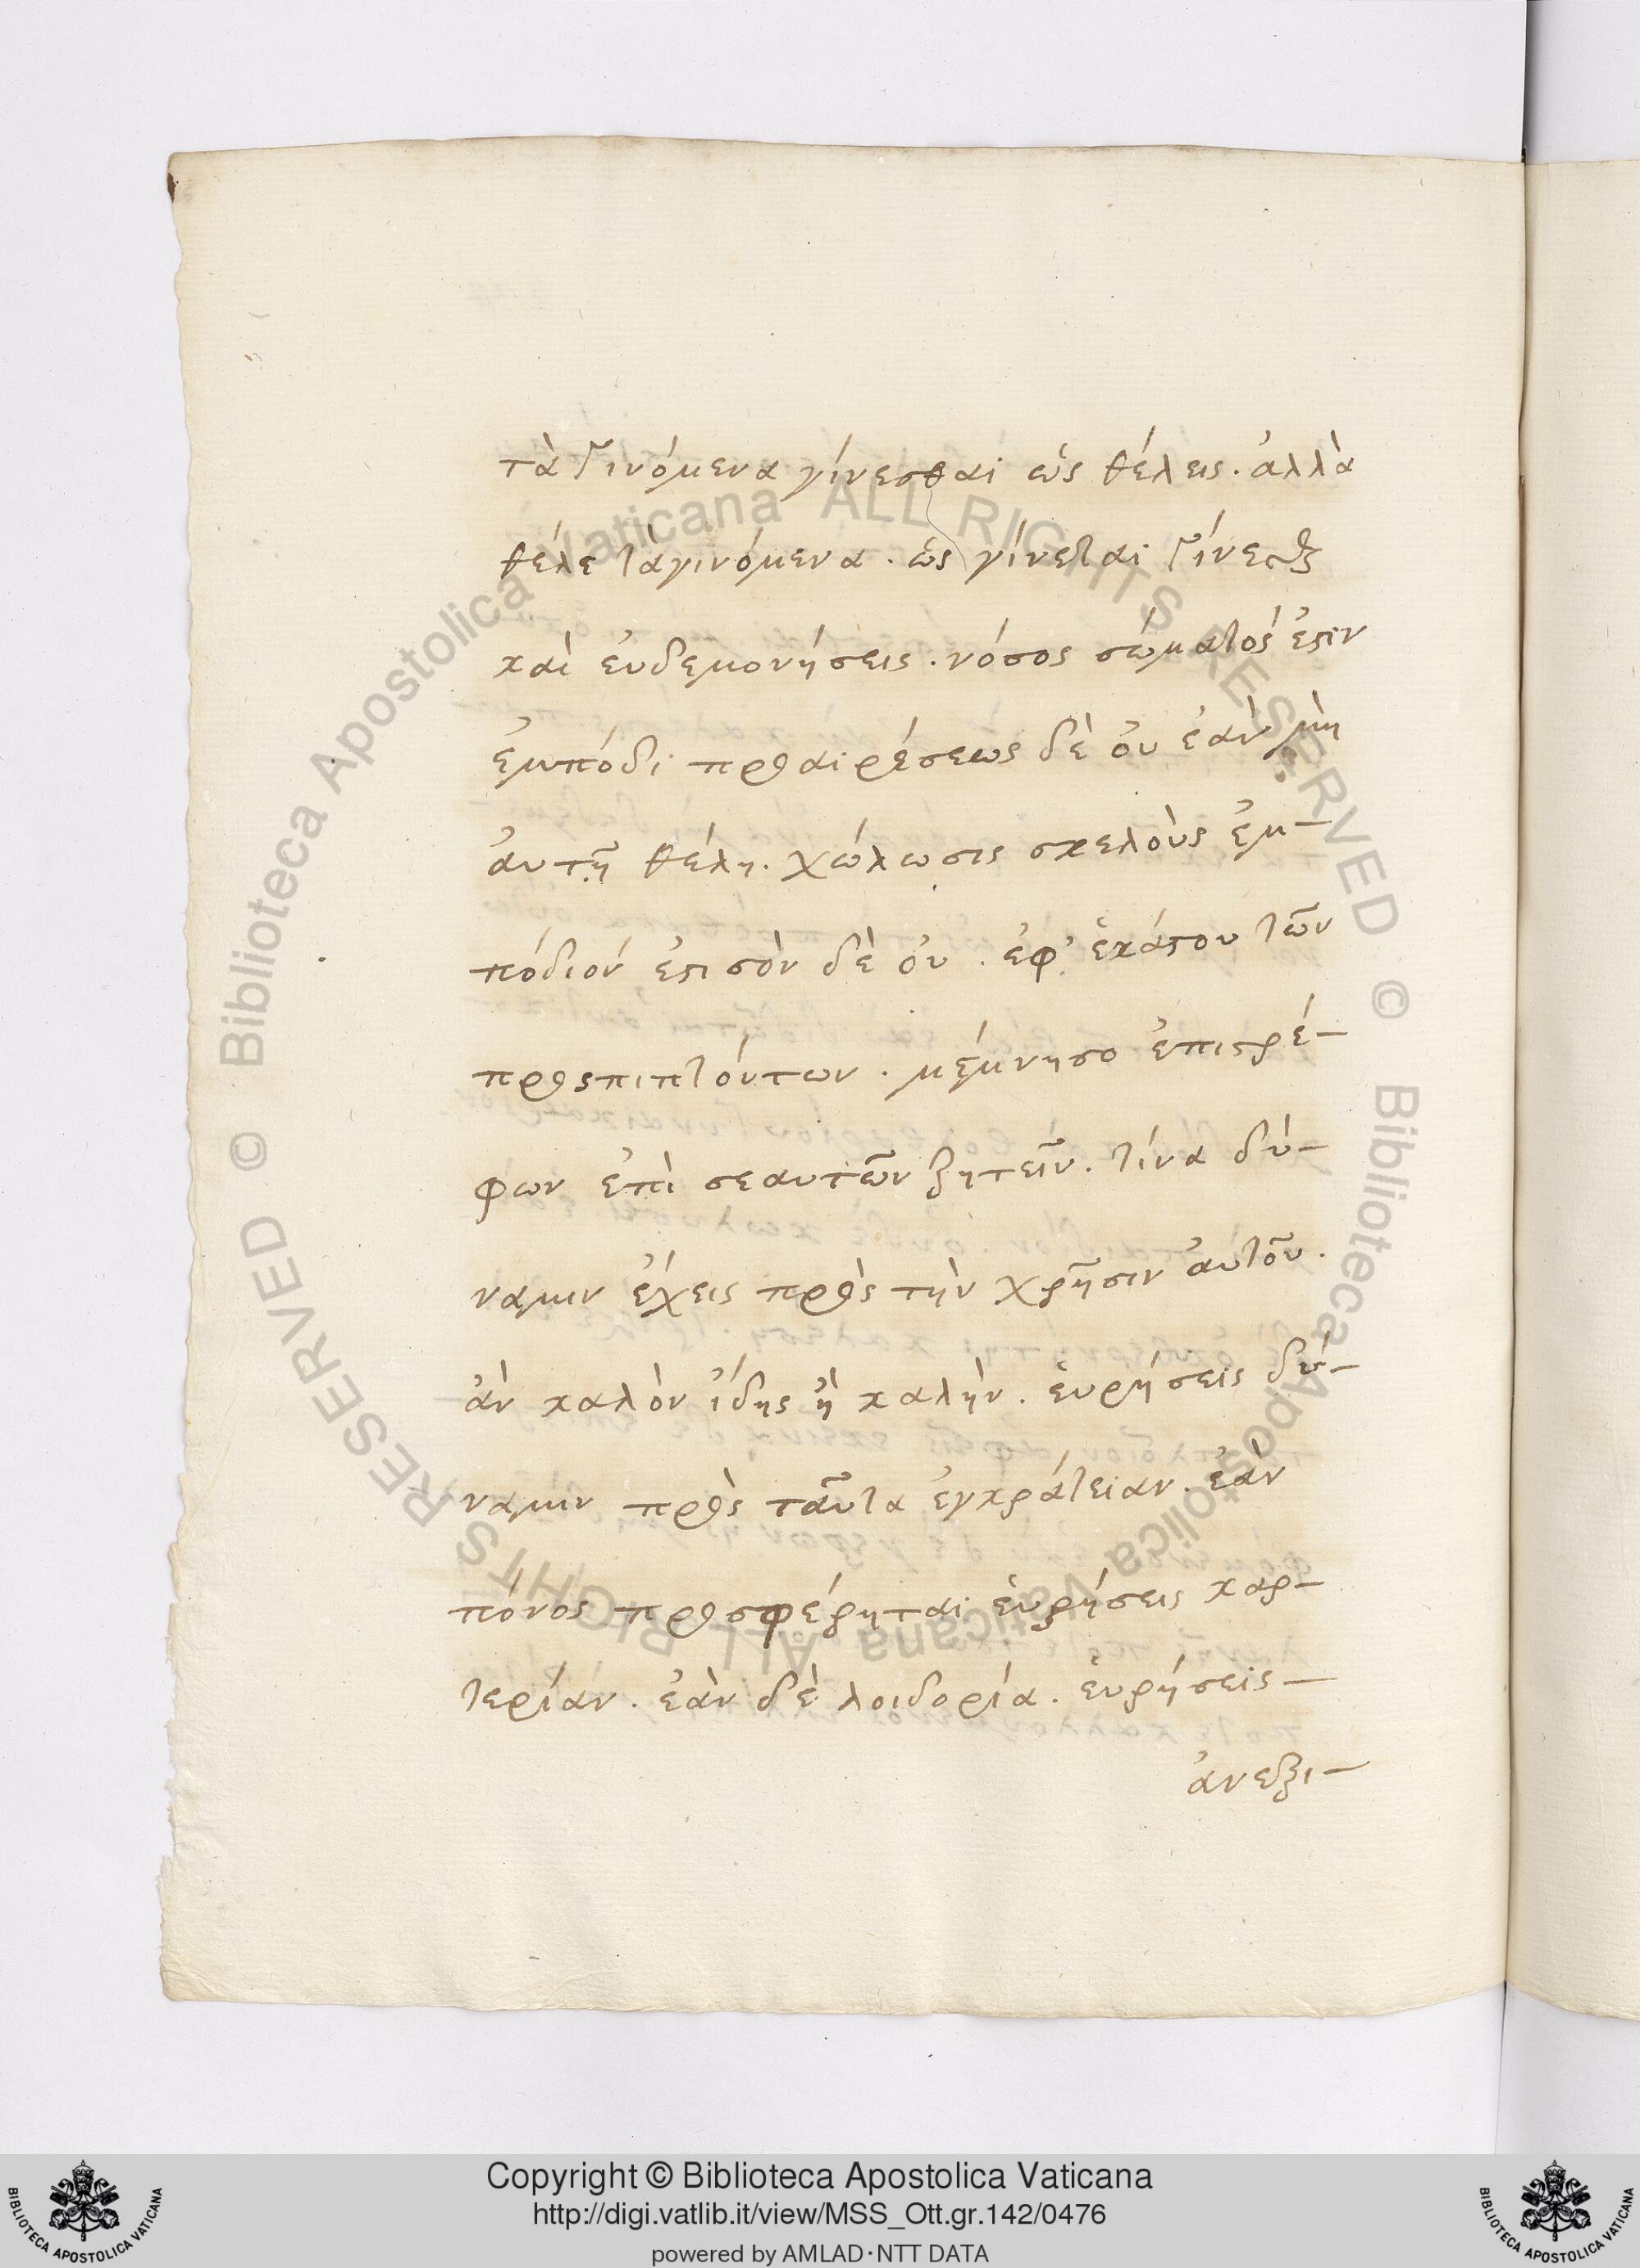 τὰ γινόμενα γίνεσθαι ὡς θέλεις. ἀλλὰ
θέλε τὰ γινόμενα. ὡς γίνεται γίνεσθαι
καὶ ἐυδεμονήσεις. νόσος σώματός ἐστιν
ἐμπόδι προαιρέσεως δὲ ὀυ ἐὰν μὴ
ἀυτῆ θέλη. χώλωσις σκελοὺς ἐμ-
πόδιόν ἐστι σὸν δὲ ὀυ. ἐφ' ἑκάστου τῶν
προσπιπτόντων. μέμνησο ἐπιστρέ-
φων ἐπὶ σεαυτῶν ζητεῖν. τίνα δύ-
ναμιν ἔχεις πρὸς τὴν χρῆσιν ἀυτοῦ.
ἀν καλὸν ἴδης ἢ καλὴν. ἑυρήσεις δύ-
ναμιν πρὸς ταῦτα ἐγκράτειαν. ἐὰν
πόνος προσφέρηται ἑυρήσεις καρ-
τερίαν. ἐὰν δὲ λοιδορία. ἑυρήσεις-
ἀνεξι-
© Biblioteca Apostolica Vaticana ALL RIGHTS RESERVED
© Biblioteca Apostolica Vaticana ALL RIGHTS RESERVED
Copyright © Biblioteca Apostolica Vaticana
http://digi.vatlib.it/view/MSS_Ott.gr.142/0476
powered by AMLAD·NTT DATA
BIBLIOTECA APOSTOLICA VATICANA
BIBLIOTECA APOSTOLICA VATICANA